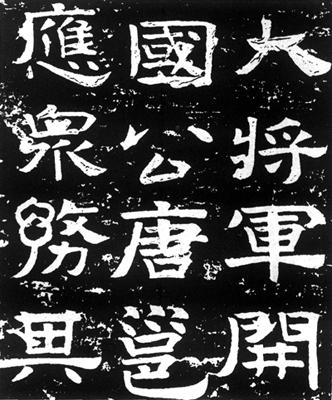 大将軍開
國公唐邕
應眾務